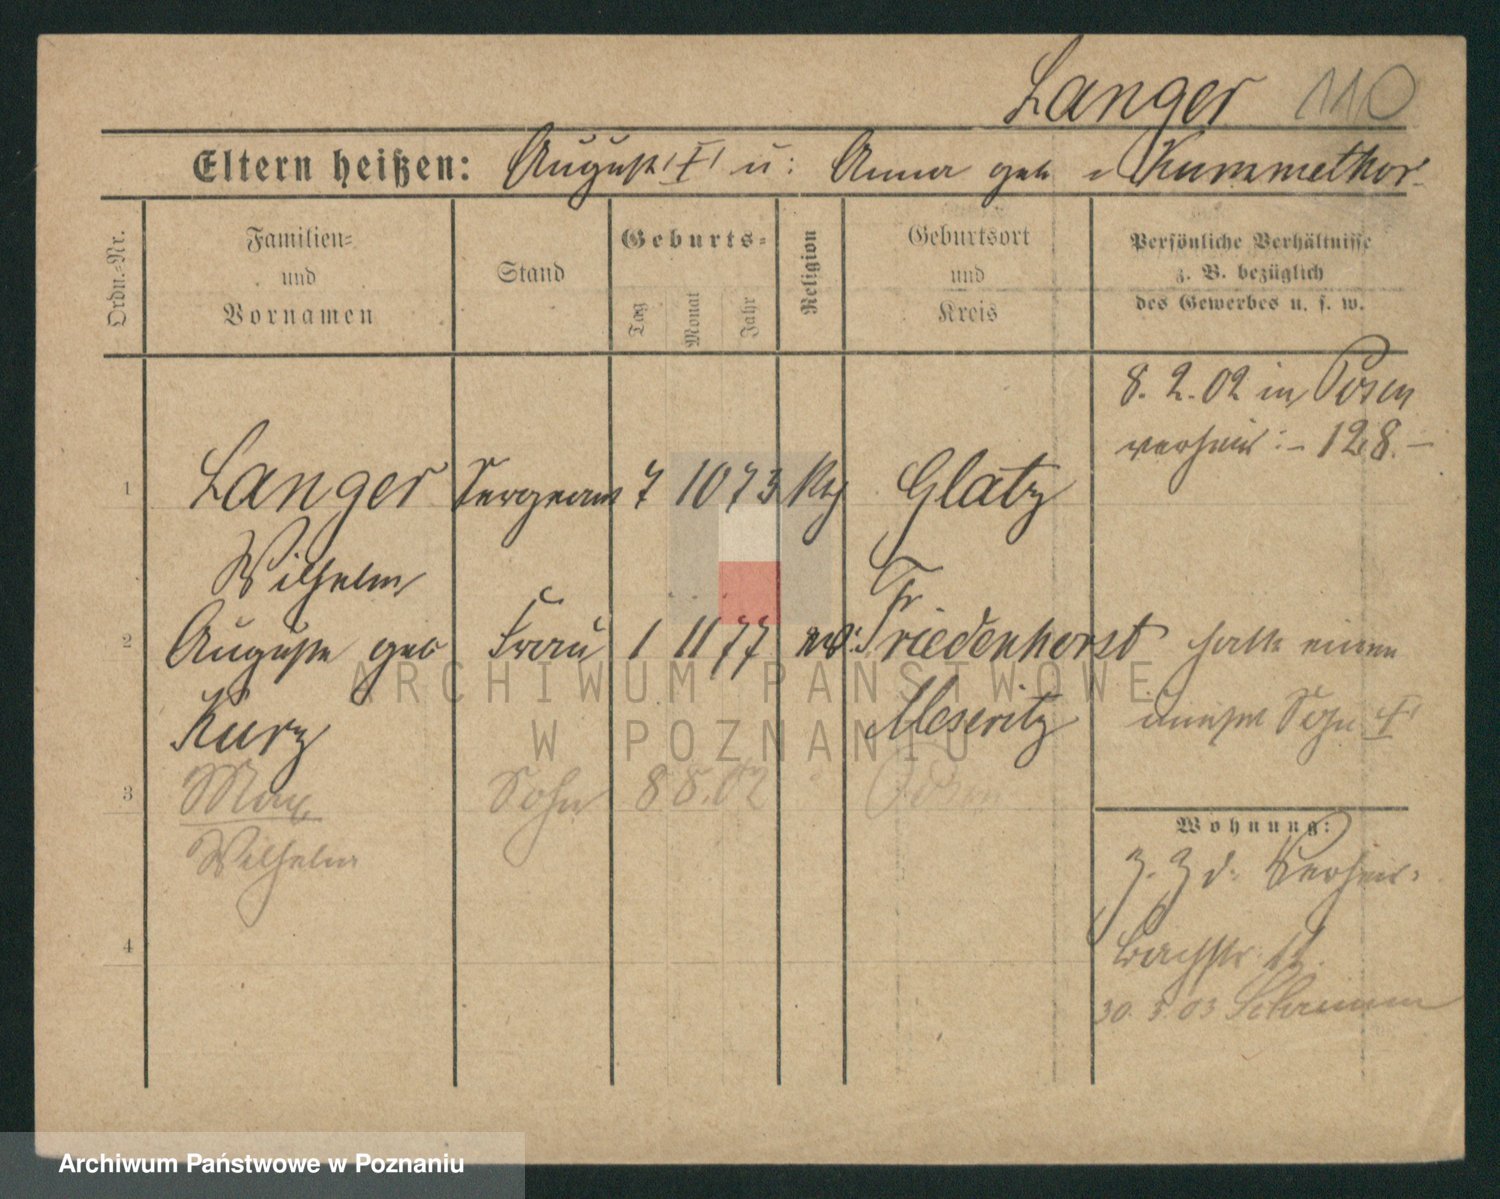 Langer 110
Eltern heißen: August † u: Anna geb Kummethor
Ordn.-Nr.
Familien-
und
Vornamen
Stand
Geburts-
Tag Monat Jahr
Religion
Geburtsort
und
Kreis
Persönliche Verhältnisse
z. B. bezüglich
des Gewerbes u. s. w.
8. 2. 02 in Posen
verheir: – 128. –
1 Langer Sergeant 7 10 73 Glatz
Wilhelm
Fr
2 Auguste geb Frau 1 11 77 ev: Friedenhorst hatte einen
Kurz Meseritz unehel Sohn †
3 Max Sohn 8 8. 02 Posen
Wilhelm
4
Wohnung:
Z. Z d. Verheir.
Bachstr 11.
30. 5. 03 Schramm
ARCHIWUM PAŃSTWOWE
W POZNANIU
Archiwum Państwowe w Poznaniu